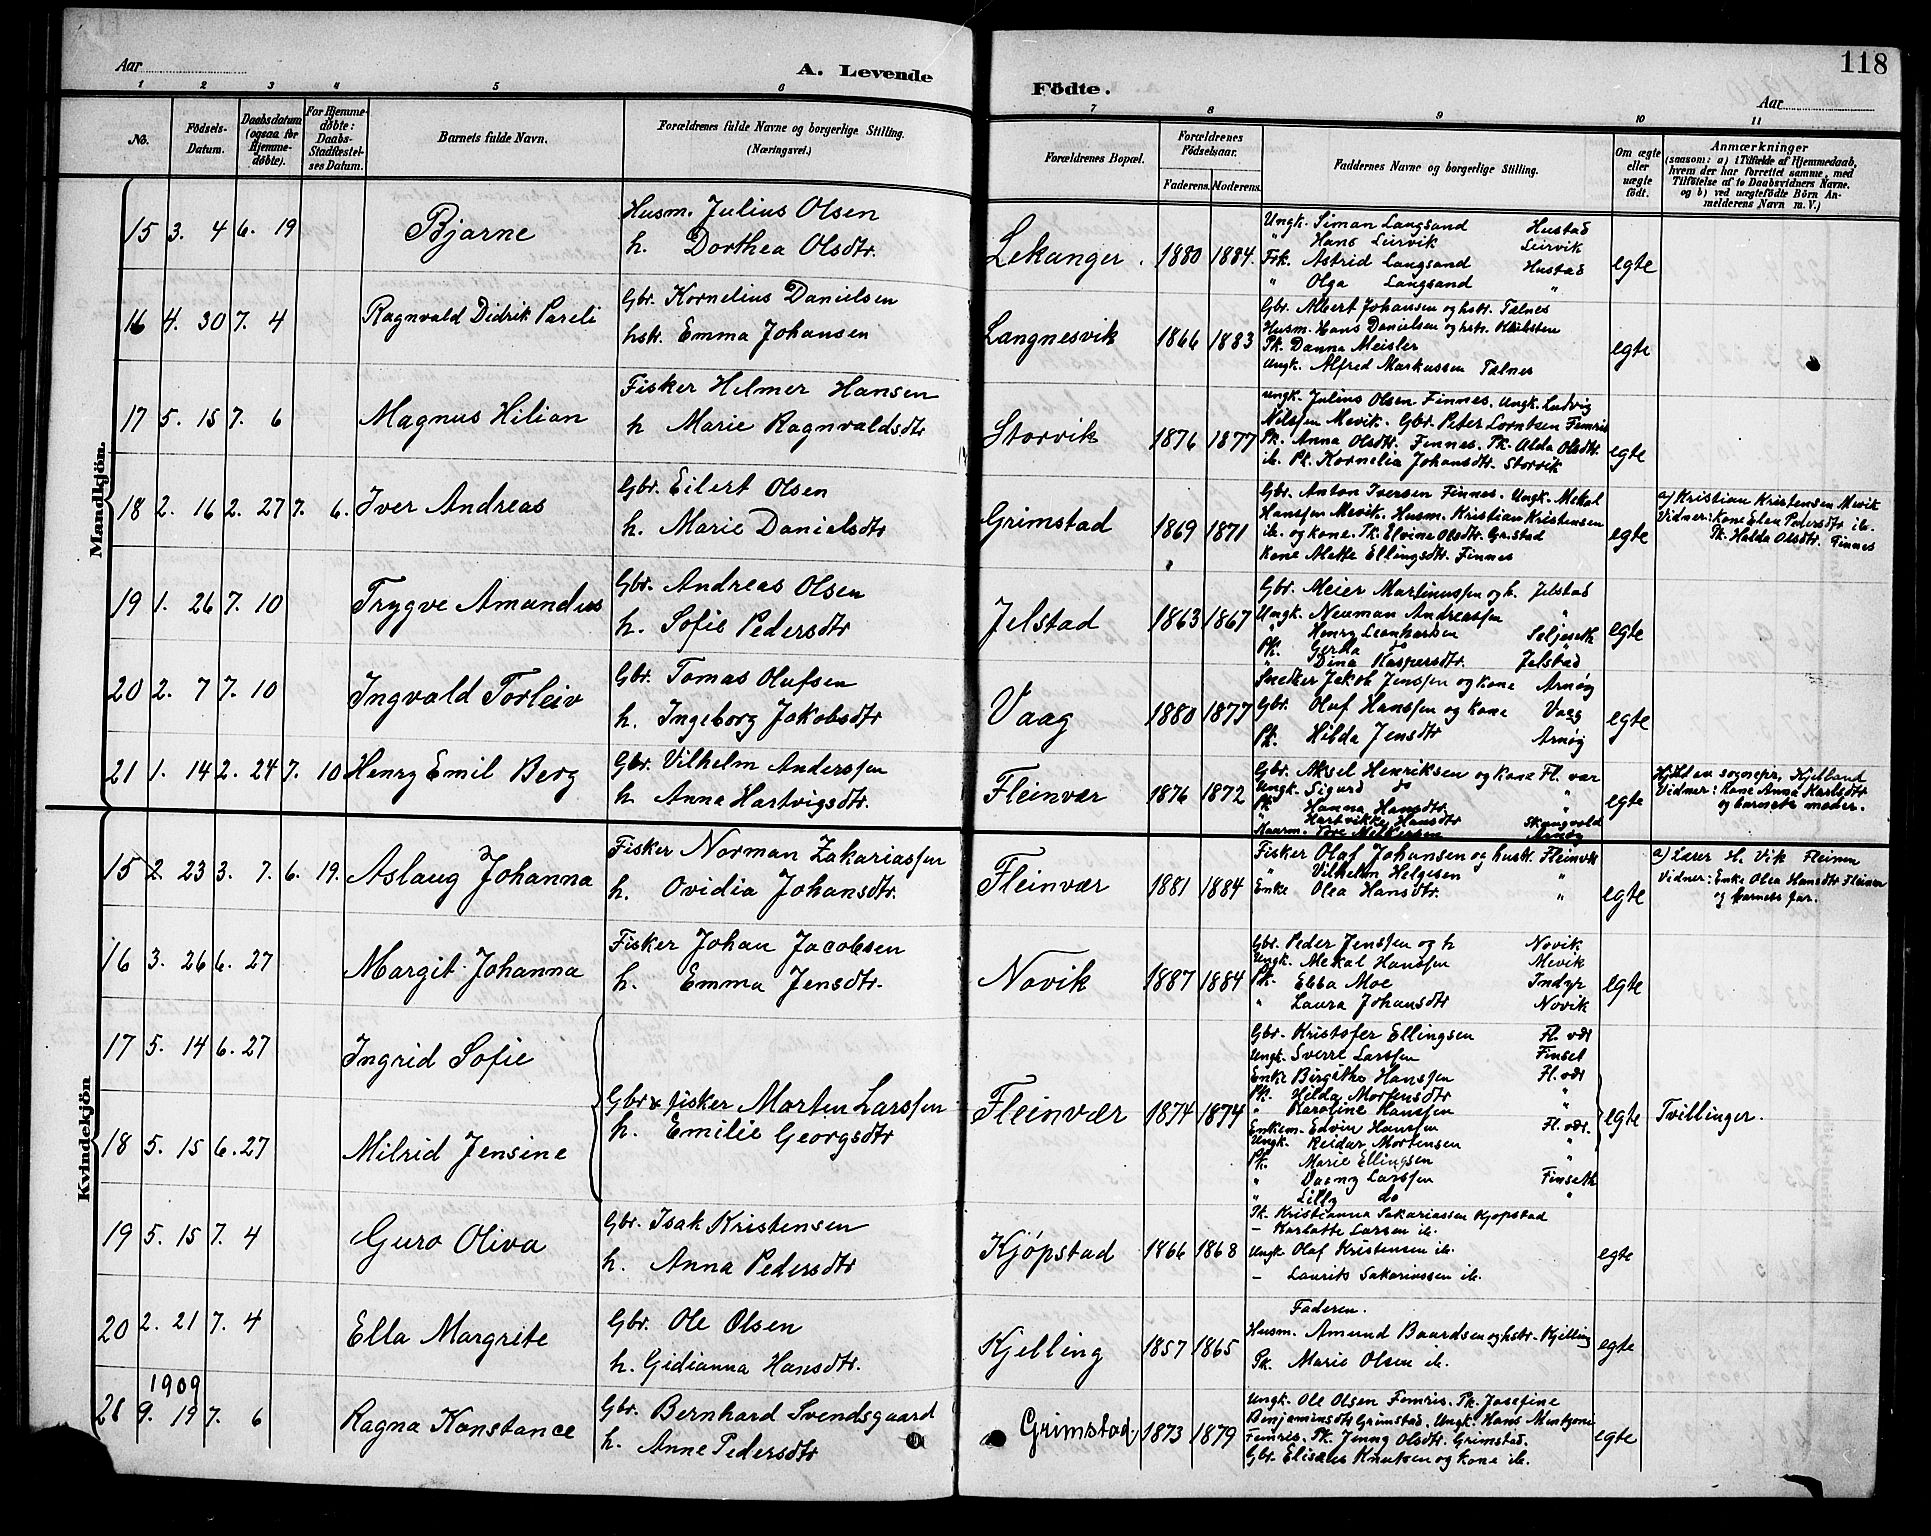 118
Aar
A. Levende
Födte.
Aar
1 2 3 4 5 6 7 8 9 10 11
No.
Födsels-Datum.
Daabsdatum (ogsaa for Hjemme-døbte).
For Hjemme-døbte: Daabs-Stadfæstel-ses Datum.
Barnets fulde Navn.
Forældrenes fulde Navne og borgerlige Stilling. (Næringsvei.)
Forældrenes Bopæl.
Forældrenes Fødselsaar.
Faderens. Moderens.
Faddernes Navne og borgerlige Stilling.
Om ægte eller uægte født.
Anmærkninger
(saasom: a) i Tilfælde af Hjemmedaab,
hvem der har forrettet samme, med
Tilføielse af to Daabsvidners Navne.
og b) ved uægtefødte Børn An-
melderens Navn m. V.)
Mandkjön.
15 3. 4 6. 19 Bjarne
Husm. Julius Olsen
h. Dorthea Olsdtr.
Lekanger. 1880 1884.
Ungk. Simon Langsand Hustad
" Hans Leirvik Leirvik
Frk. Astrid Langsand Hustad
" Olga Langsand "
egte
16 4. 30 7. 4 Ragnvald Didrik Pareli
Gbr. Kornelius Danielsen
hsk. Emma Johansen
Langnesvik 1866 1883
Gbr. Albert Johansen og hstr. Talnes
Husm. Hans Danielsen og hstr. Klibsten
Pk. Danna Meisler
Ungk. Alfred Markussen Talnes
egte
17 5. 15 7. 6 Magnus Hilian
Fisker Helmer Hansen
h Marie Ragnvaldsdtr
Storvik 1876 1877
Ungk. Julius Olsen Finnes. Ungk. Ludvig
Nilssen Mevik. Gbr. Peter Lorntsen Femris
Pk. Anna Olsdtr. Finnes. Pk. Alda Olsdtr.
ib. Pk. Kornelia Johansdtr. Storvik
egte
18 2. 16 2. 27 7. 6. Iver Andreas
Gbr. Eilert Olsen
h. Marie Danielsdtr
Grimstad 1869 1871
Gbr. Anton Iversen Finnes. Ungk. Mekal
Hanssen Mevik. Husm. Kristian Kristensen
ib. og kone. Pk. Elvine Olsdtr. Gr.stad
Kone Mette Ellingsdtr. Finnes
egte
a) Kristian Kristensen Mevik
Vidner: Kone Elen Pedersdtr ib.
Pk. Halda Olsdtr. Finnes
19 1. 26 7. 10 Trygve Amandus
Gbr. Andreas Olsen
h. Sofie Pedersdtr
Jelstad 1863 1867
Gbr. Meier Martinussen og h. Jelstad
Ungk. Neuman Andreassen "
" Henry Leonhardsen Seljeseth
Pk. Gerda do
" Dina Kaspersdtr. Jelstad
egte
20 2. 7 7. 10 Ingvald Torleiv
Gbr. Tomas Olufsen
h. Ingeborg Jakobsdtr
Vaag 1880 1877
Snedker Jakob Jenssen og kone Arnøy
Gbr. Oluf Hanssen og kone Vaag
Pk. Hilda Jensdtr Arnøy
egte
21 1. 14 2. 24 7. 10 Henry Emil Berg
Gbr. Vilhelm Anderssen
h. Anna Hartvigsdtr.
Fleinvær 1876 1872
Gbr. Aksel Henriksen og kone Fl. vær
Ungk. Sigurd do "
Pk. Hanna Hansdtr. "
" Hartvikke Hansdtr Skaugvold
Kaarm. Tore Melkersen Arnøy
egte
Hjdbt av sognepr. Kjelland
Vidner: Kone Anna Karlsdtr
og barnets moder.
Kvindekjön
15 2. 23 3. 7. 6. 19. Aslaug Johanna
Fisker Norman Zakariassen
h. Ovidia Johansdtr.
Fleinvær 1881 1884
Fisker Olaf Johansen og hustr. Fleinvær
" Vilhelm Helgesen "
Enke Olea Hansdtr. "
egte
a) Lærer H. Vik Fleinen
Vidner: Enke Olea Hansdtr Fleinen
og barnets far.
16 3. 26 6. 27 Margit Johanna
Fisker Johan Jacobsen
h. Emma Jensdtr.
Novik 1887 1884
Gbr. Peder Jenssen og h Novik
Ungk. Mekal Hanssen Mevik
Pk. Ebba Moe Indyr
" Laura Johansdtr Novik
egte
17 5. 14 6. 27 Ingrid Sofie
18 5. 15 6. 27 Milrid Jensine
Gbr & fisker Morten Larssen
h. Emilie Georgsdtr
Fleinvær 1874 1874
Gbr. Kristofer Ellingsen Fl. vær
Ungk. Sverre Larssen Finset
Enke Birgithe Hanssen Fl. vær
Pk. Hilda Mortensdtr "
" Karoline Hanssen "
Enkem. Edvin Hanssen Fl. vær.
Ungk. Reidar Mortensen "
Pk. Marie Ellingsen "
" Dagny Larssen Finseth
" Lilly do "
egte Tvillinger.
19 5. 15 7. 4 Guro Oliva
Gbr. Isak Kristensen
h. Anna Pedersdtr
Kjøpstad 1866 1868
Pk. Kristianna Sakariassen Kjøpstad
— Karlotte Larsen ib.
Ungk Olaf Kristensen ib.
— Laurits Sakariassen ib.
egte
20 2. 21 7. 4 Ella Margrete
Gbr. Ole Olsen
h. Gidianna Hansdtr.
Kjelling 1857 1865
Faderen.
Husm. Amund Baardsen og hstr. Kjelling
Pk. Marie Olsen ib.
egte
1909
9. 19 7. 6 Ragna Konstance
Gbr. Bernhard Svendsgaard
h. Anne Pedersdtr
Grimstad 1873 1879
Ungk. Ole Olsen Femris. Pk. Josefine
Benjaminsdtr Grimstad. Ungk. Hans Mentzoni
Femris. Pk. Jenny Olsdtr. Grimstad.
Gbr. Elisæus Knutsen og kone ib.
egte